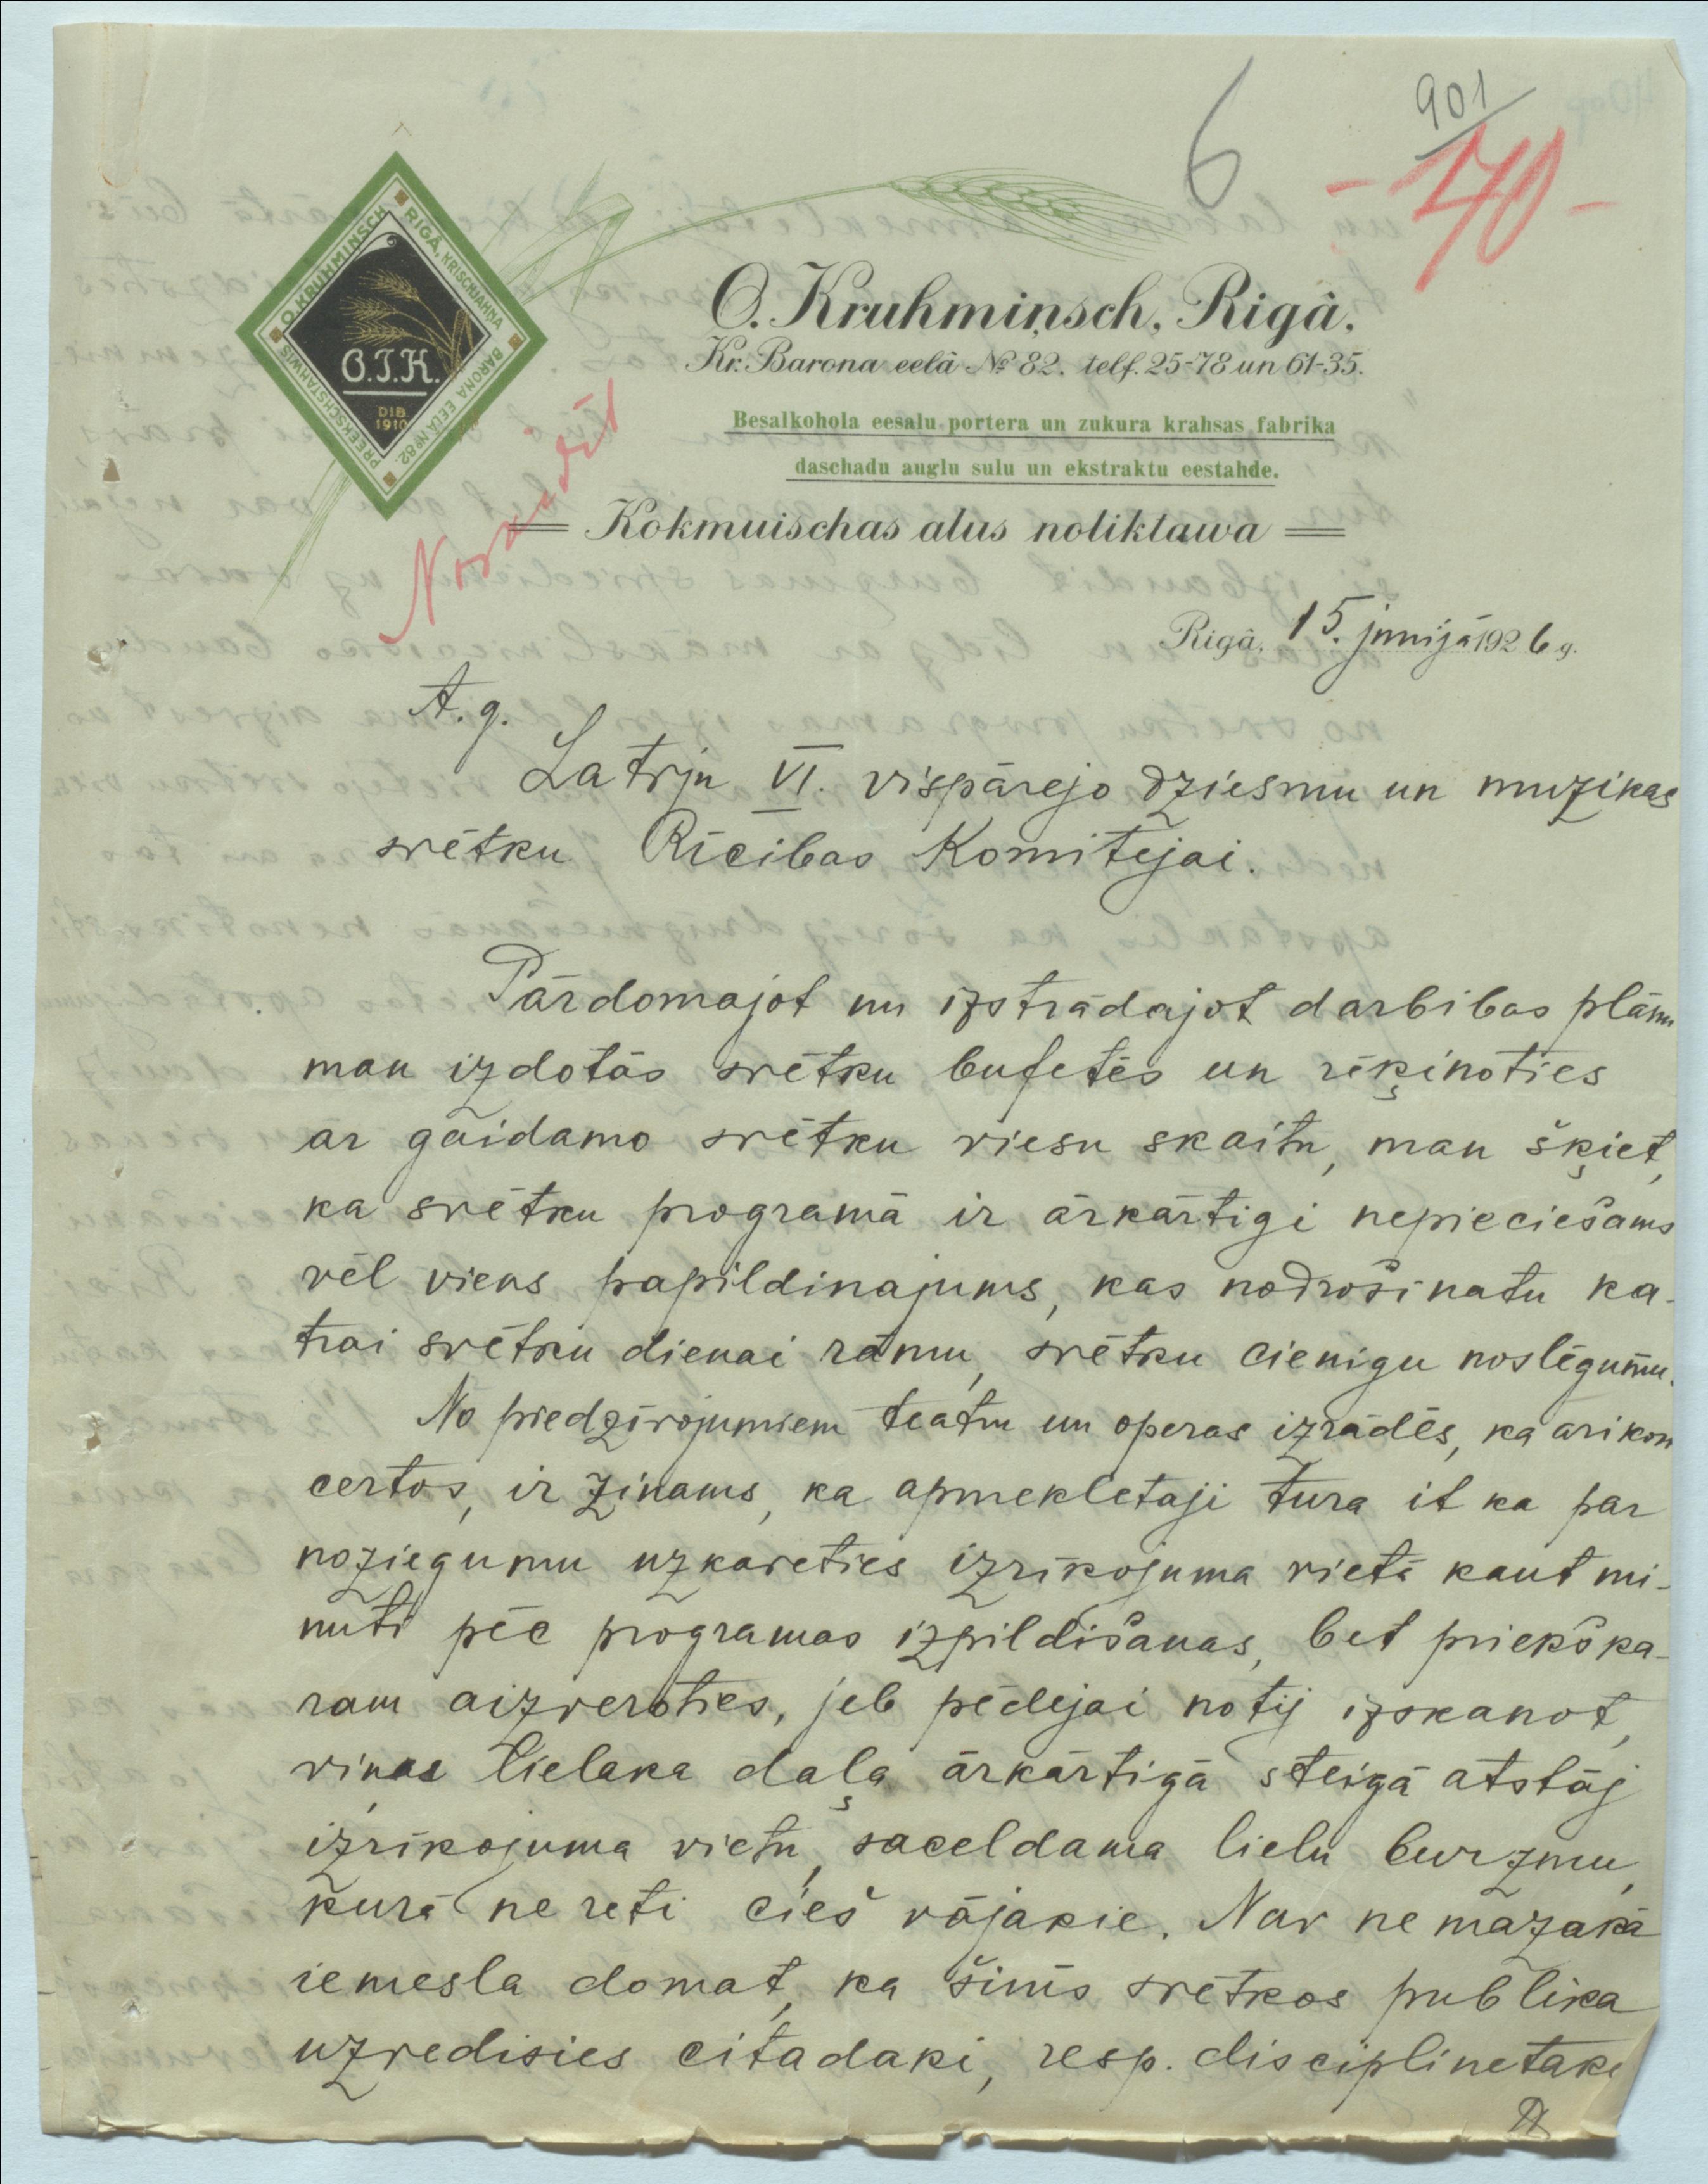 6
901
-170-
O. KRUHMINSCH
RIGÂ, KRISCHJAHNA
BARONA EELÂ № 82.
PREEKSCHSTAHWIS
O.J.K.
DIB.
1910
O. Kruhmiņsch, Rigâ.
Kr. Barona eelâ № 82. telf. 25-78 un 61-35.
Besalkohola eesalu portera un zukura krahsas fabrika
daschadu auglu sulu un ekstraktu eestahde.
Kokmuischas alus noliktawa
Noraidīt
Rigâ, 15. junijā 1926 g.
A. g.
Latvju VI. vispārejo dziesmu un muzikas
svētku Rīcības Komitejai.
Pārdomajot un izstrādajot darbibas plānu
man izdotās svētku bufetēs un rēķinoties
ar gaidamo svētku viesu skaitu, man šķiet,
ka svētku programā ir ārkārtigi nepieciešams
vēl viens papildinajums, kas nodrošinatu ka-
trai svētku dienai rāmu, svētku cienigu noslēgumu.
No piedzīvojumiem teatru un operas izrādēs, kā ari kon
certos, ir zinams, ka apmekletaji tura it ka par
noziegumu uzkavēties izrīkojuma vietā kaut mi-
nuti pēc programas izpildišanas, bet priekška-
ram aizveroties, jeb pēdejai notij izskanot,
viņas lielaka daļa ārkārtigā steigā atstāj
izrīkojuma vietu, saceldama lielu burzmu,
kurā ne reti cieš vājakie. Nav ne mazakā
iemesla domat, ka šinīs svētkos publika
uzvedisies citadaki, resp. disciplinetaki